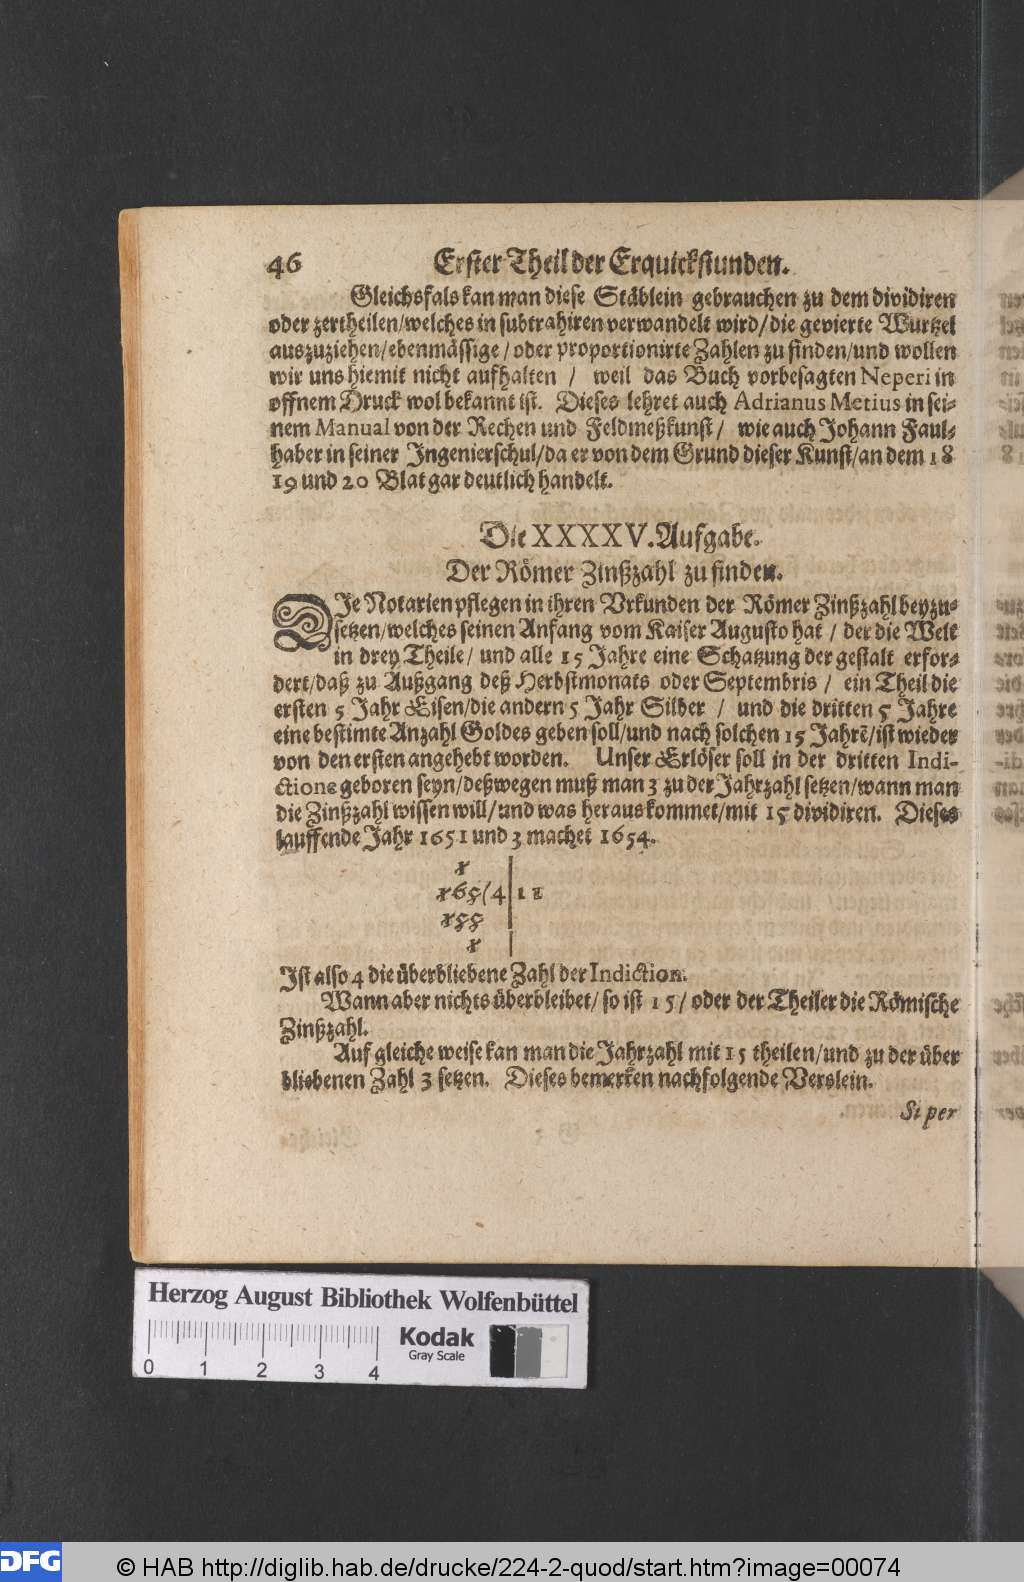 46 Erster Theil der Erquickstunden.
Gleichsfals kan man diese Stäblein gebrauchen zu dem dividiren
oder zertheilen/welches in subtrahiren verwandelt wird/die gevierte Wurtzel
auszuziehen/ebenmässige/oder proportionirte Zahlen zu finden/und wollen
wir uns hiemit nicht aufhalten / weil das Buch vorbesagten Neperi in
offnem Druck wol bekannt ist. Dieses lehret auch Adrianus Metius in sei-
nem Manual von der Rechen und Feldmeßkunst/ wie auch Johann Faul-
haber in seiner Ingenierschul/da er von dem Grund dieser Kunst/an dem 18
19 und 20 Blat gar deutlich handelt.
Die XXXXV. Aufgabe.
Der Römer Zinßzahl zu finden.
DIe Notarien pflegen in ihren Vrkunden der Römer Zinßzahl beyzu-
setzen/welches seinen Anfang vom Kaiser Augusto hat / der die Welt
in drey Theile/ und alle 15 Jahre eine Schatzung der gestalt erfor-
dert/daß zu Außgang deß Herbstmonats oder Septembris / ein Theil die
ersten 5 Jahr Eisen/die andern 5 Jahr Silber / und die dritten 5 Jahre
eine bestimte Anzahl Goldes geben soll/und nach solchen 15 Jahrē/ist wieder
von den ersten angehebt worden. Unser Erlöser soll in der dritten Indi-
ctione geboren seyn/deßwegen muß man 3 zu der Jahrzahl setzen/wann man
die Zinßzahl wissen will/und was heraus kommet/mit 15 dividiren. Dieses
lauffende Jahr 1651 und 3 machet 1654.
1
165(4 | 11
155
1
Ist also 4 die überbliebene Zahl der Indiction.
Wann aber nichts überbleibet/ so ist 15/ oder der Theiler die Römische
Zinßzahl.
Auf gleiche weise kan man die Jahrzahl mit 15 theilen/und zu der über
bliebenen Zahl 3 setzen. Dieses bemerken nachfolgende Verslein.
Si per
Herzog August Bibliothek Wolfenbüttel
Kodak
Gray Scale
0 1 2 3 4
DFG © HAB http://diglib.hab.de/drucke/224-2-quod/start.htm?image=00074